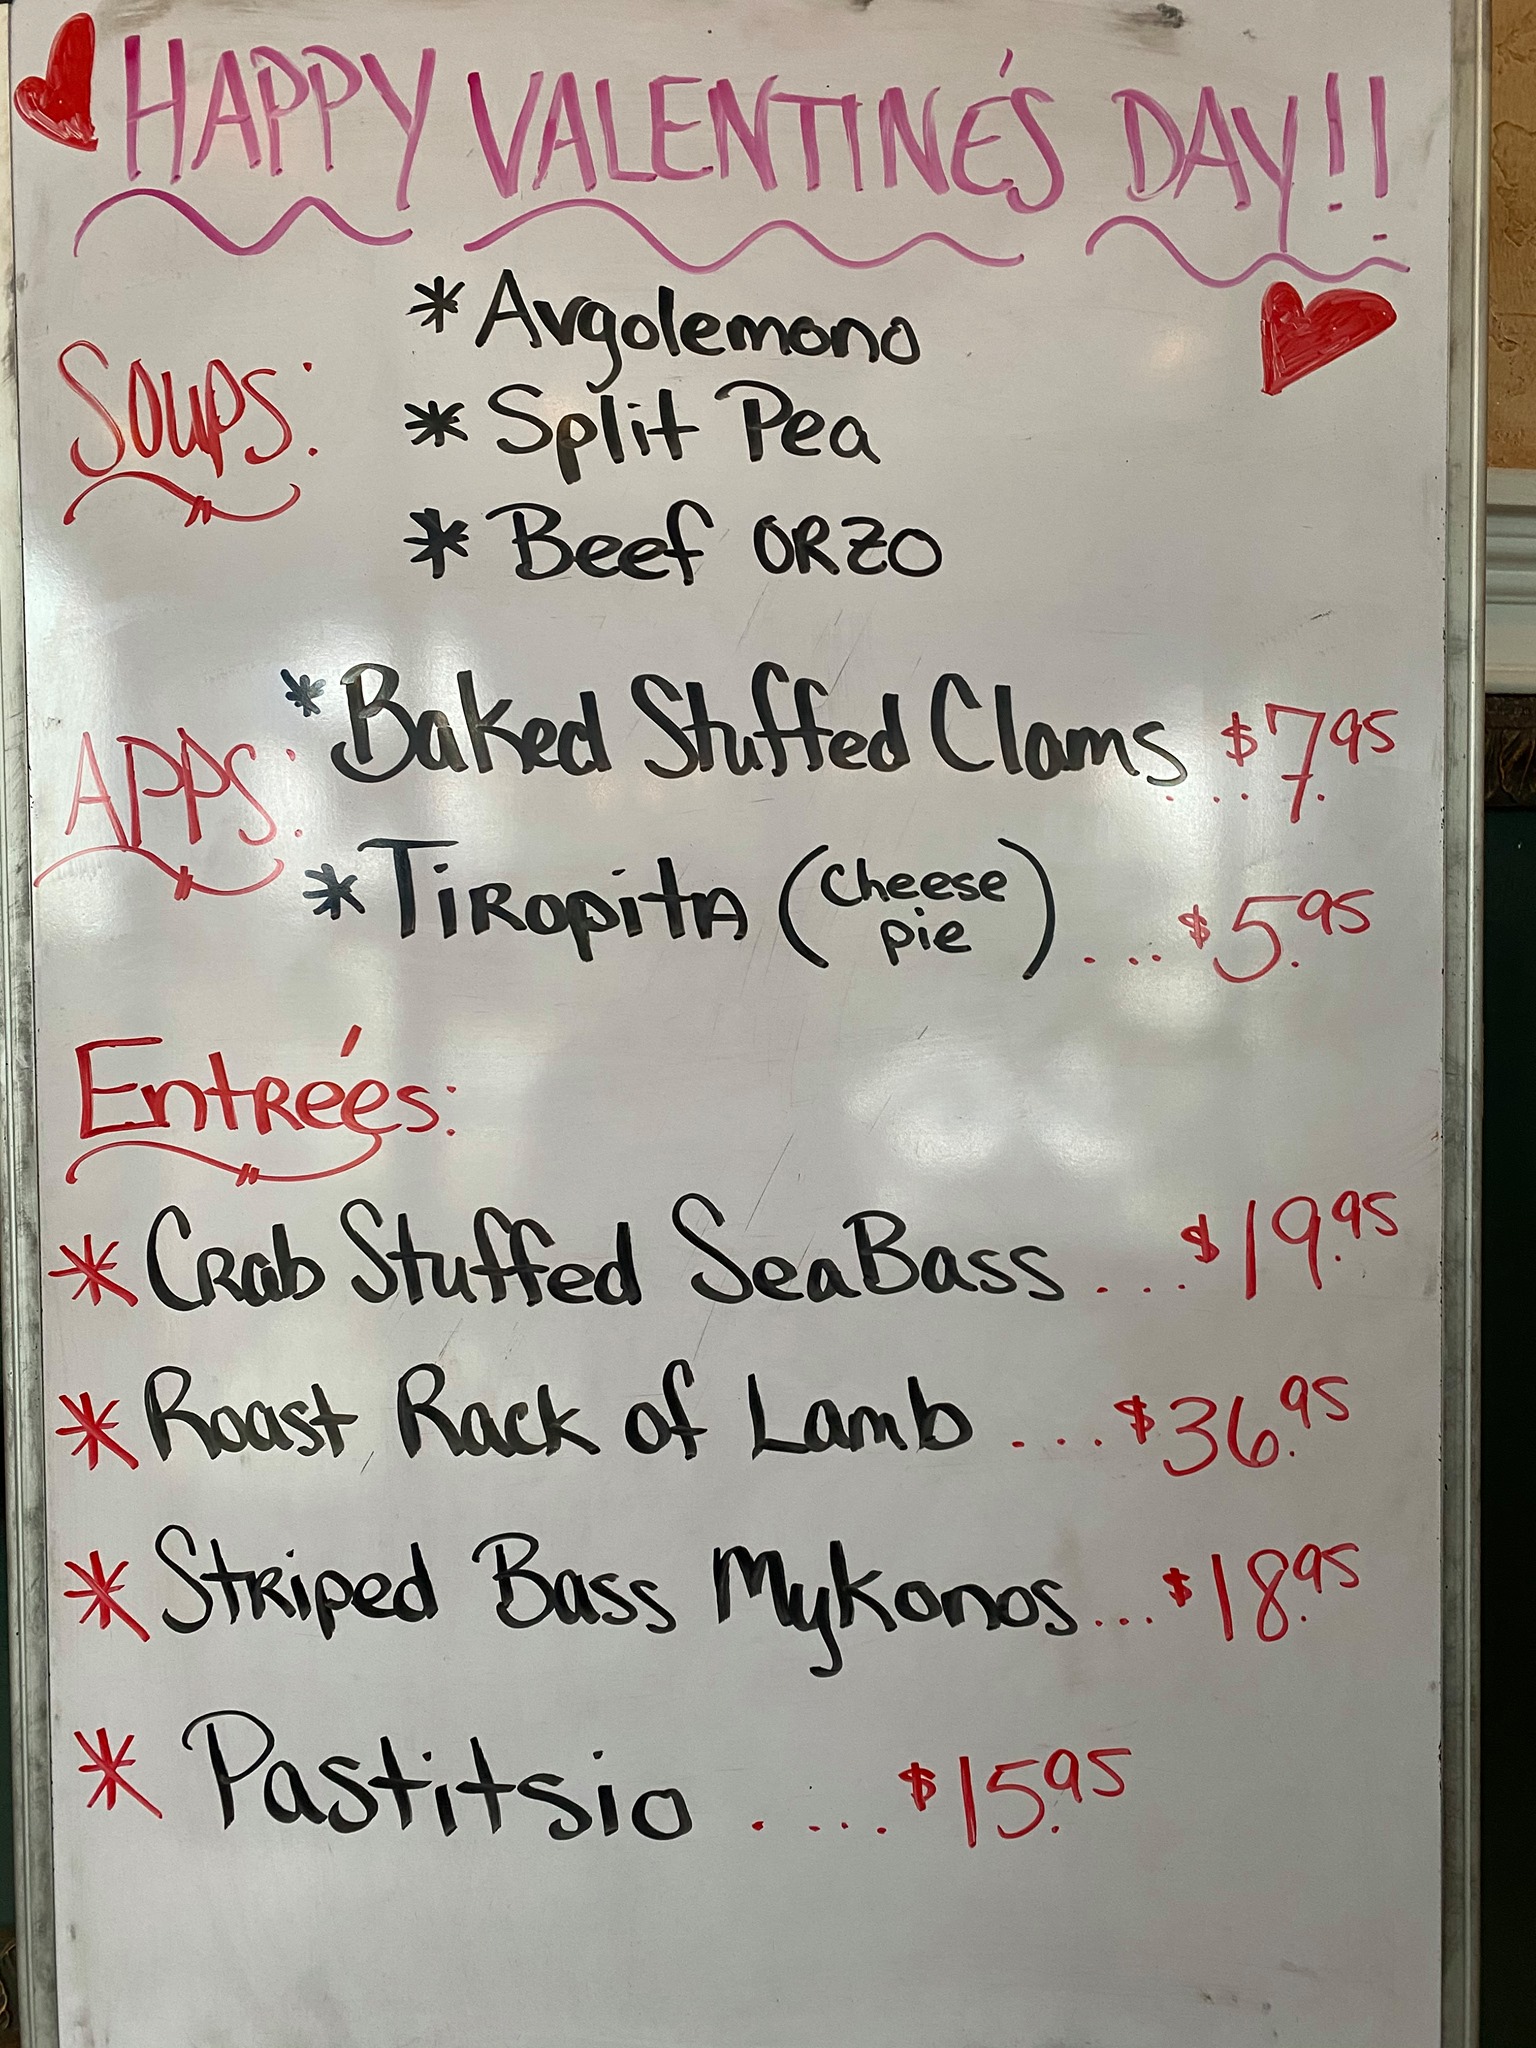 HAPPY VALENTINE'S DAY!!
SOUPS:
* Avgolemono
* Split Pea
* Beef ORZO
APPS:
* Baked Stuffed Clams .... $7.95
* TiRopitA (cheese pie) .... $5.95
Entrées:
* CRab Stuffed SeaBass ... $19.95
* Roast Rack of Lamb .... $36.95
* StRiped Bass Mykonos ... $18.95
* Pastitsio .... $15.95